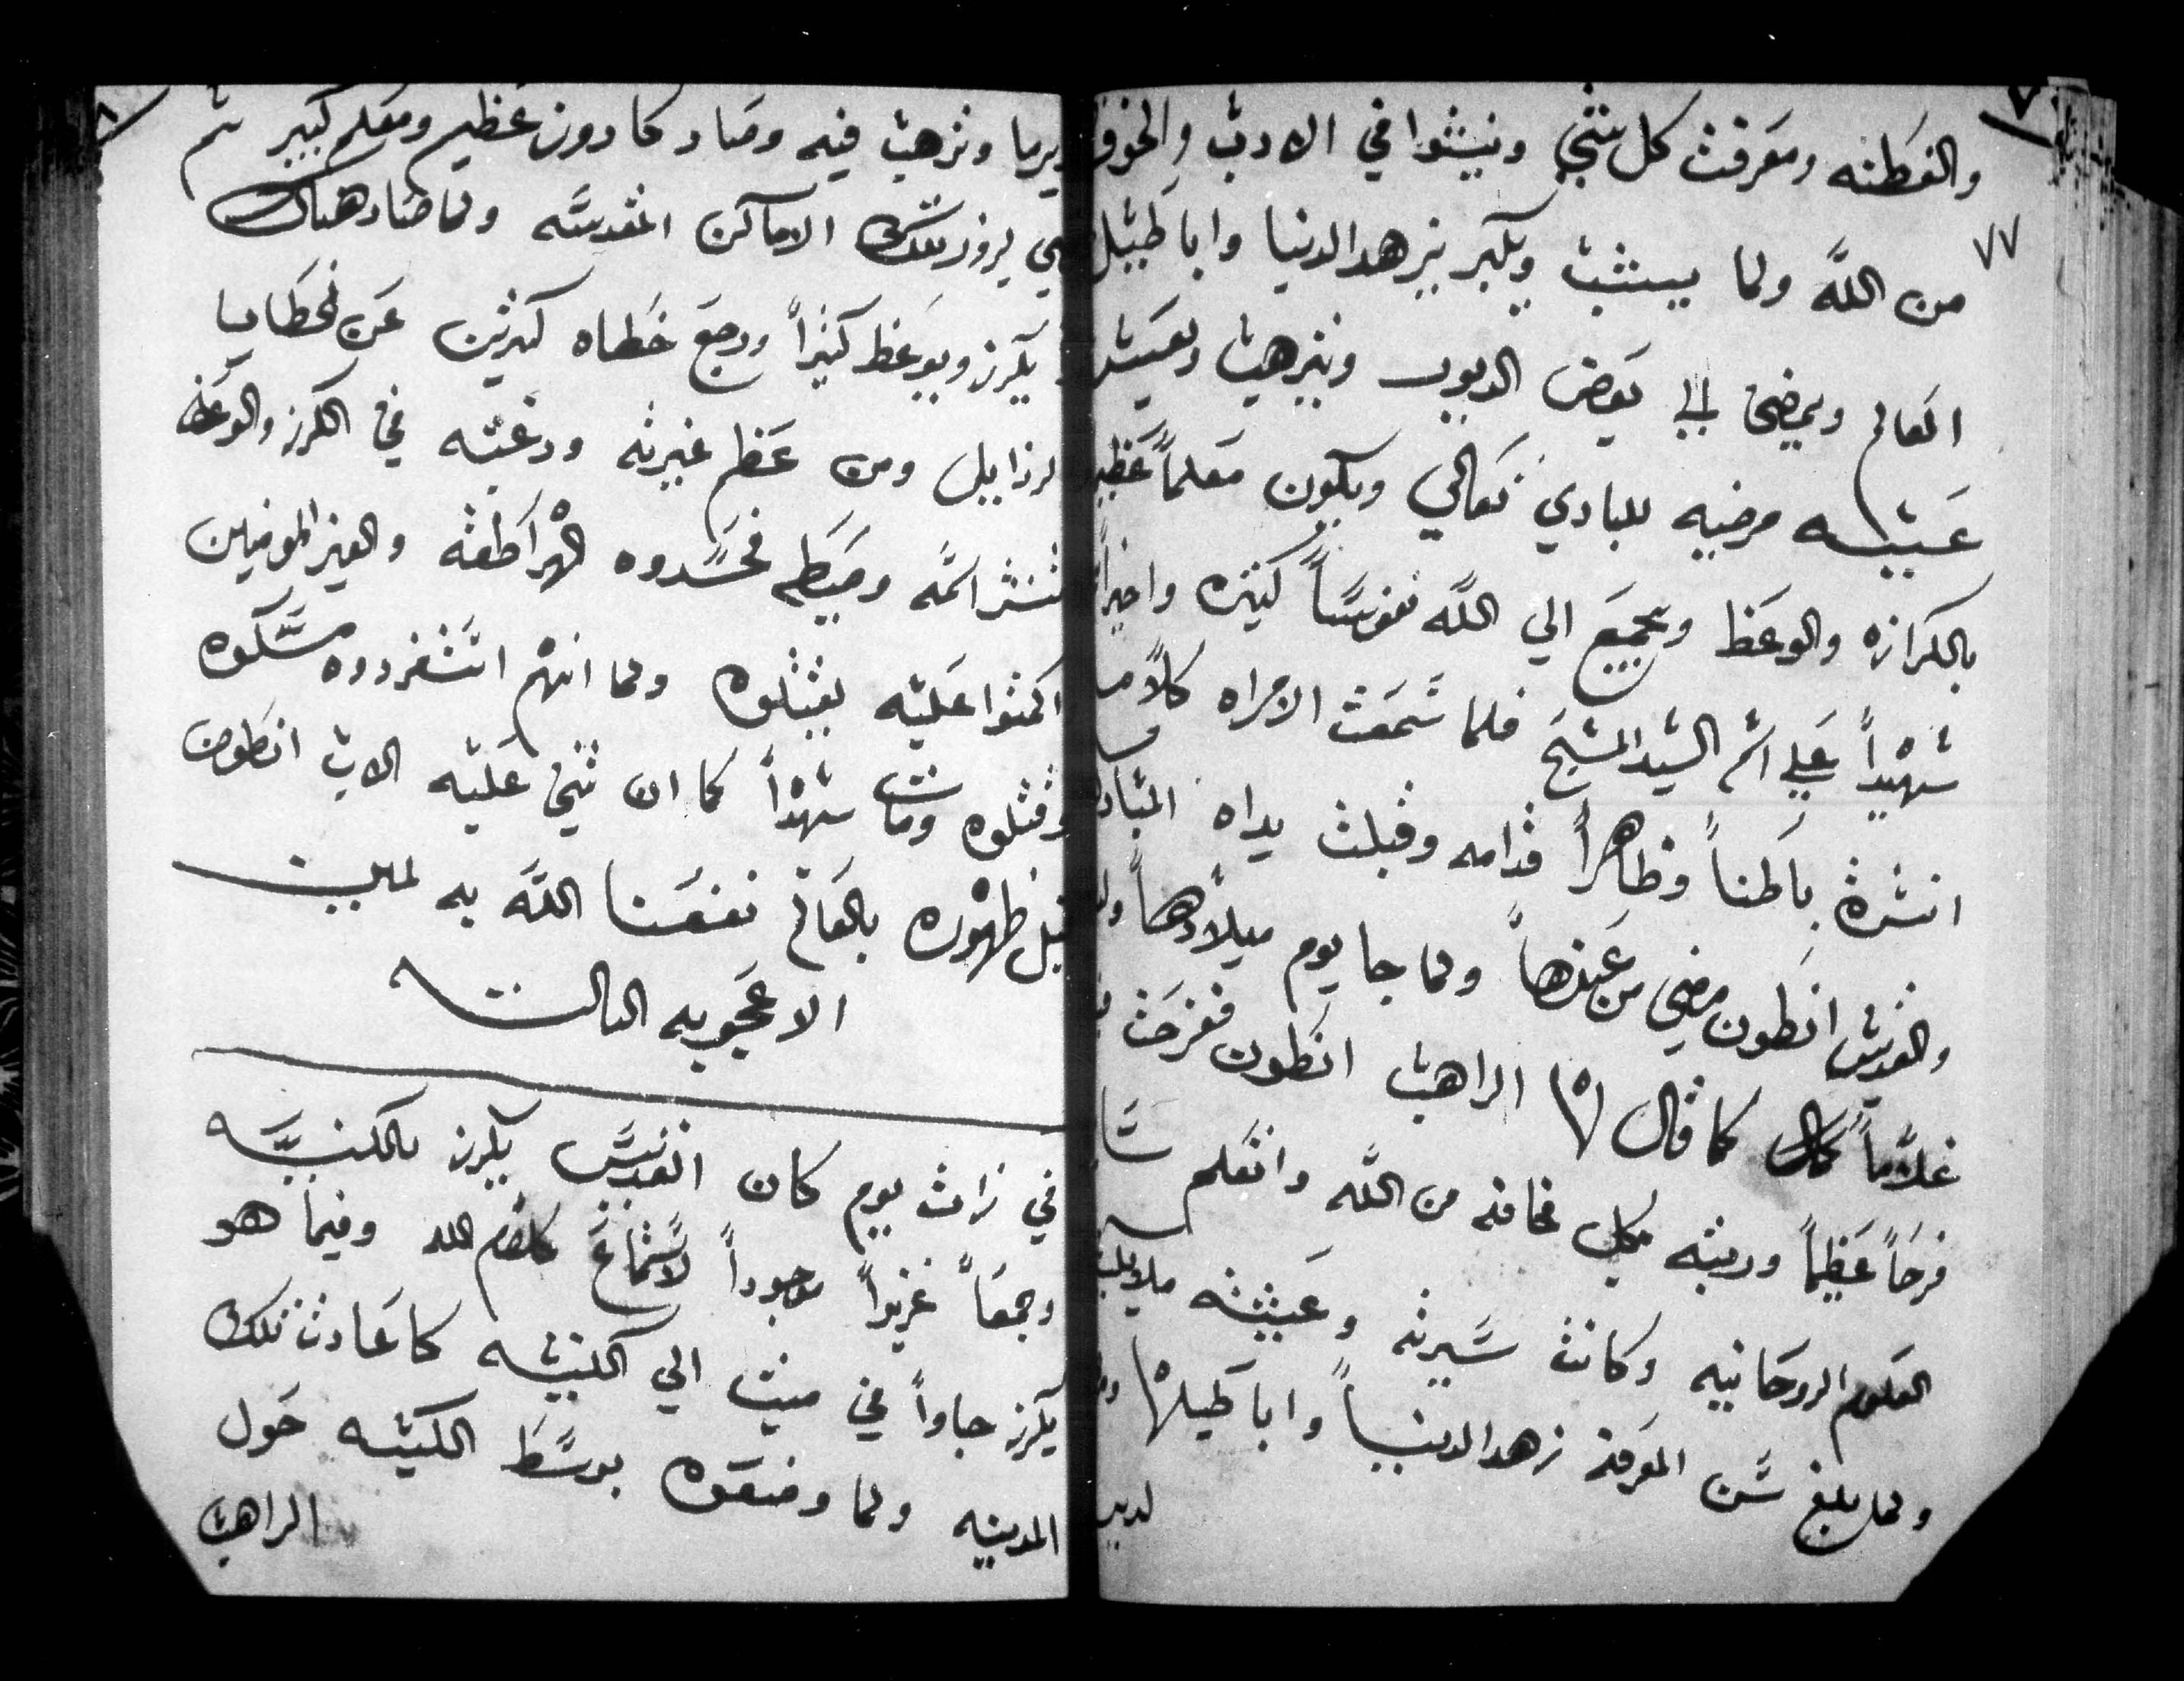 والفطنه ومعرفت كل شي وينشوا في الادب والخوف
٧٧
من الله ولما يستتب ويكبر يزهد الدنيا واباطيل
العالم ويمضي الي بعض الديور ويترهب وتعيش
عيشه مرضيه للباري تعالي ويكون معلماً عظيم
بالكرازه والوعظ ويجمع الي الله نفوساً كثيره واخيراً
شهيداً علي اسم السيد المسيح فلما سمعت الامراه كلامه
انسرة باطناً وظاهراً قدامه وقبلت يداه المباركه
والقديس انطون مضي من عندها ولما جا يوم ميلادها ولدت
غلاماً كما قال لها الراهب انطون ففرحت به
فرحاً عظيماً وربته بكل مخافه من الله واتعلم سا
العلوم الروحانيه وكانت سيرته وعيشته ملايكيه
ولما بلغ سن المعرفه زهد الدنيا واباطيلها
لدير
ديرما وترهب فيه وصار كاروز عظيم ومعلم كبير ثم
مضي يزور تلك الاماكن المقدسه ولما صار هناك
يكرز ويوعظ كثيراً ورجع خطاه كثيرين عن الخطايا
الرذايل ومن عظم غيرته ورغبته في الكرز والوعظ
انتشر اسمه وصيطه فحسدوه الهراطقه والغير المومنين
اكمنوا عليه يقتلوه ولما انهم استفردوه مسكوه
وقتلوه ومات شهيداً كما ان تنبي عليه الاب انطون
قبل ظهوره بالعالم نفعنا الله به امين
الاعجوبه الثالثه
في ذات يوم كان القديس يكرز بالكنيسه
وجمعاً غزيراً موجوداً لاستماع كلام الله وفيما هو
يكرز جاوا في ميت الي الكنيسه كما عادت تلك
المدينه ولما وضعوه بوسط الكنيسه حول
الراهب